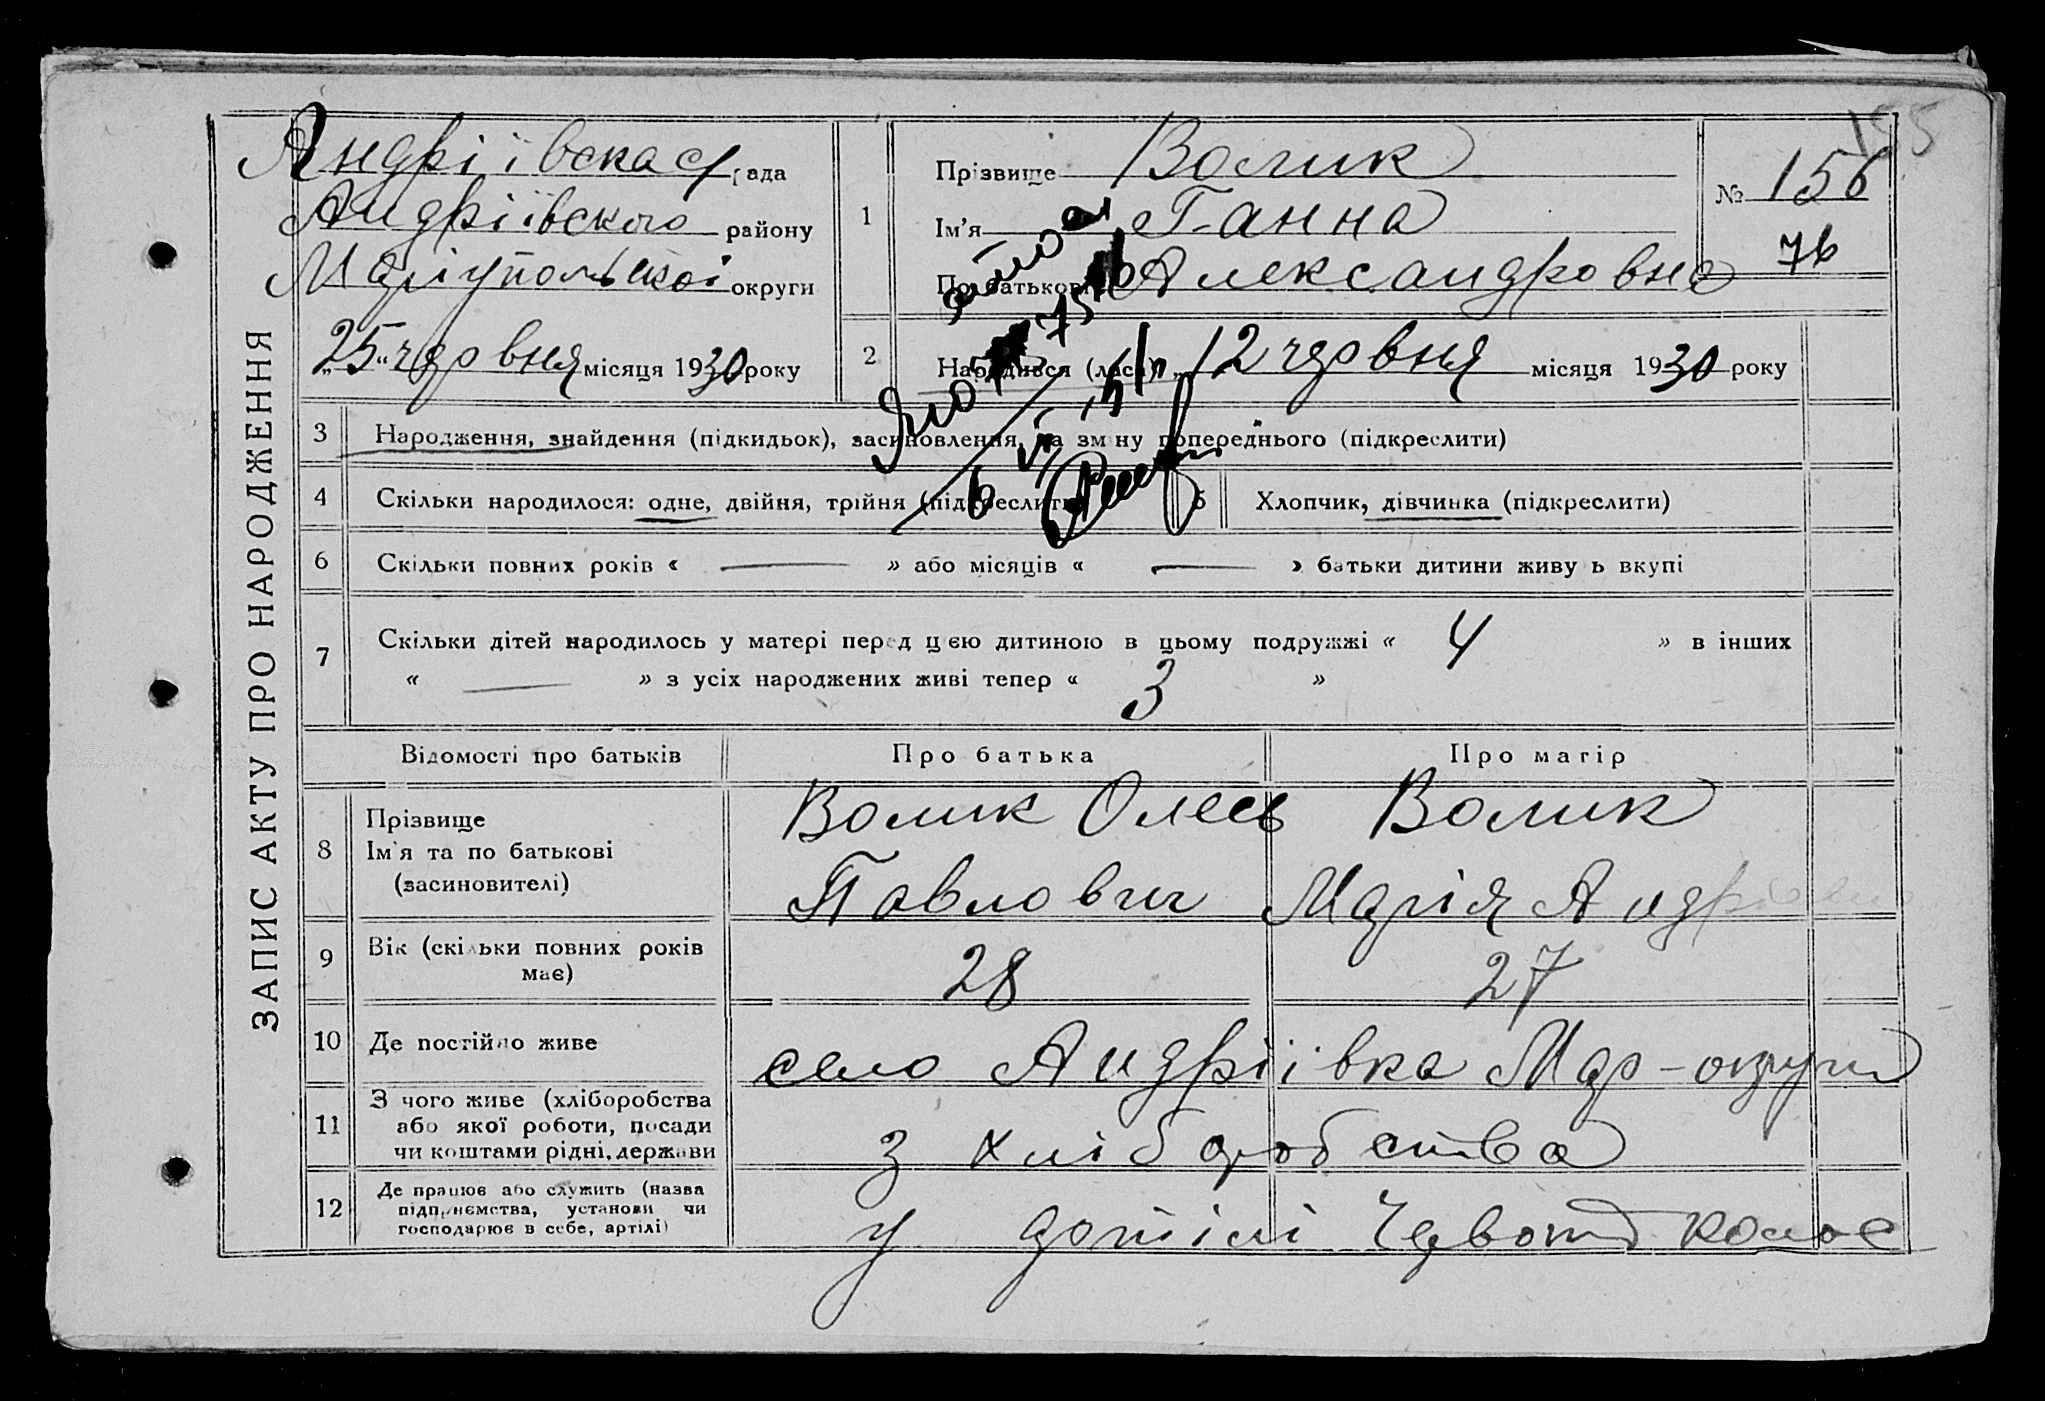 ЗАПИС АКТУ ПРО НАРОДЖЕННЯ
Андріївска с/рада
Андріївского району
Маріупольської округи
„25“ червня місяця 1930 року
1
Прізвище Волик
Ім'я Ганна
По батькові Александровна
№ 156
155
76
2
Народився (лася) „12 червня місяця 1930 року
3 Народження, знайдення (підкидьок), засиновлення, на зміну попереднього (підкреслити)
4 Скільки народилося: одне, двійня, трійня (підкреслити)
5 Хлопчик, дівчинка (підкреслити)
6 Скільки повних років « — » або місяців « — » батьки дитини живуть вкупі
7 Скільки дітей народилось у матері перед цією дитиною в цьому подружжі « 4 » в інших
« — » з усіх народжених живі тепер « 3 »
Відомості про батьків Про батька Про матір
8 Прізвище
Ім'я та по батькові
(засиновителі)
Волик Олесь
Павлович
Волик
Марія Андріевна
9 Вік (скільки повних років
має)
28 27
10 Де постійно живе село Андріївка Мар-округи
11 З чого живе (хліборобства
або якої роботи, посади
чи коштами рідні, держави
з хліборобства
12 Де працює або служить (назва
підприємства, установи чи
господарює в себе, артілі)
у артілі Червон колос